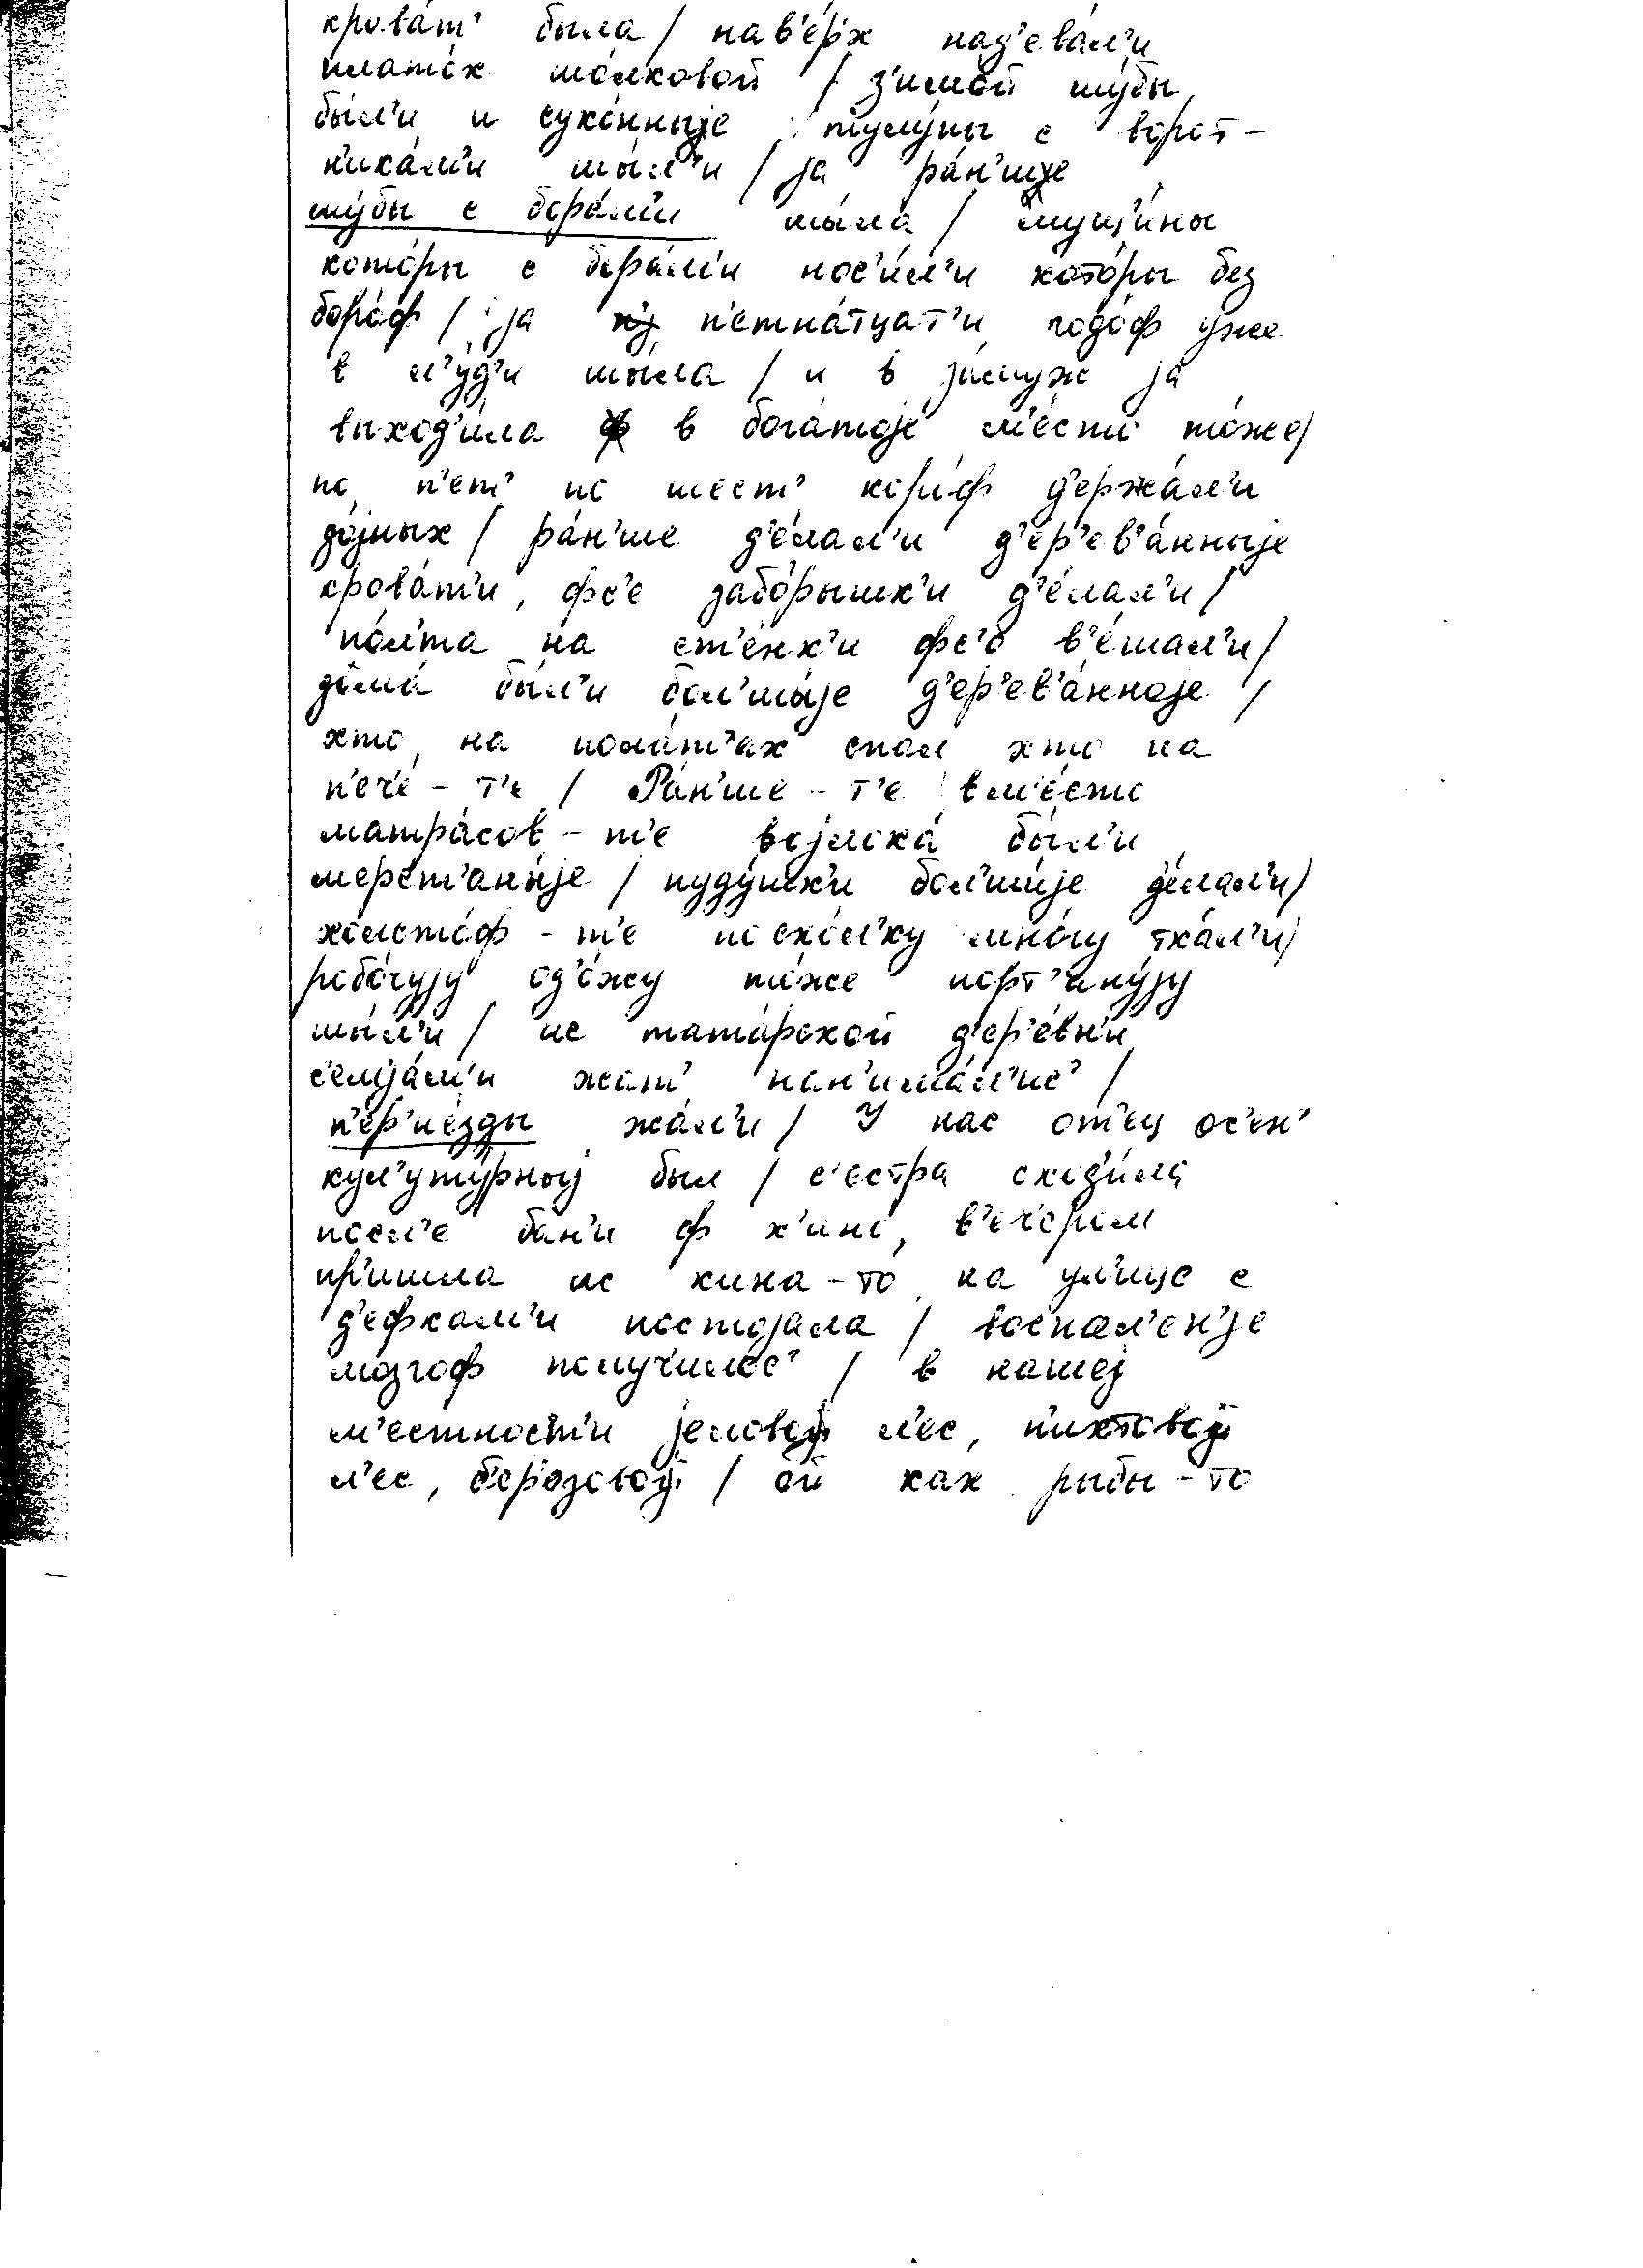 крова́т' была / нав'е́р'х над'ева́л'и
плато́к шо́лковой / з'имо́й шу́бы
бы́л'и и суко́нныjе тулу́пы с ворот-
н'ика́м'и шы́л'и / jа ра́н'шjе
шу́бы с бора́м'и шы́ла / мущ'и́ны
кото́ры с бора́м'и нос'и́л'и кото́ры без
боро́ф / jа п'етна́тцат'и годо́ф уже
в л'у́д'и шы́ла / и в за́муж jа
выход'и́ла в бога́тоjе м'е́сто то́же /
по п'ет' по шест' коро́ф д'ержа́л'и
до́jных / ра́н'ше д'е́лал'и д'ер'ев'а́нныjе
крова́т'и, фс'е забо́рышк'и д'е́лал'и /
по́л'та на ст'е́нк'и фс'о в'е́шал'и /
дома́ бы́л'и бол'шы́jе д'ер'ев'а́нноjе /
хто на пола́т'ах спал хто на
п'еч'е́ - т'е / Ра́н'ше - т'е вм'е́сто
матра́сов - т'е воjлока́ бы́л'и
шерст'аны́jе / пуду́шк'и бол'шы́jе д'е́лал'и /
холсто́ф - т'е поско́л'ку мно́гу тка́л'и /
робо́чуjу од'о́жу то́же порт'ану́jу
шы́л'и / ис тата́рской д'ер'е́вн'и
с'емjа́м'и жат' нан'има́л'ис' /
п'ер'йе́зды жа́л'и / У нас от'ец ос'ен'
кул'уту́рноj был / с'естра сход'и́ла
посл'е бан'и ф к'ино, в'еч'ером
пр'ишла ис кина - то на ул'ице с
д'ефкам'и постоjала / воспал'ен'jе
мозгоф получ'илос' / в нашеj
м'естност'и jеловоj л'ес, п'ихтовоj
л'ес, б'ер'озовоj / ой как рыбы - то